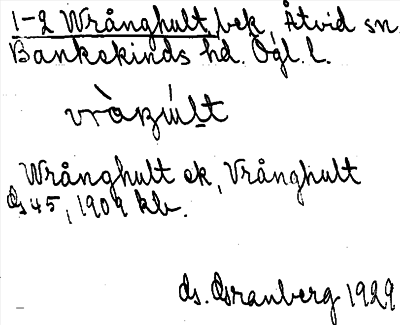 1-2 Wrånghult bek, Åtvid sn.
Bankekinds hd. Ögl. l.
Wrånghult ek, Vrånghult
Gs 45, 1909 kb.
Granberg 1929